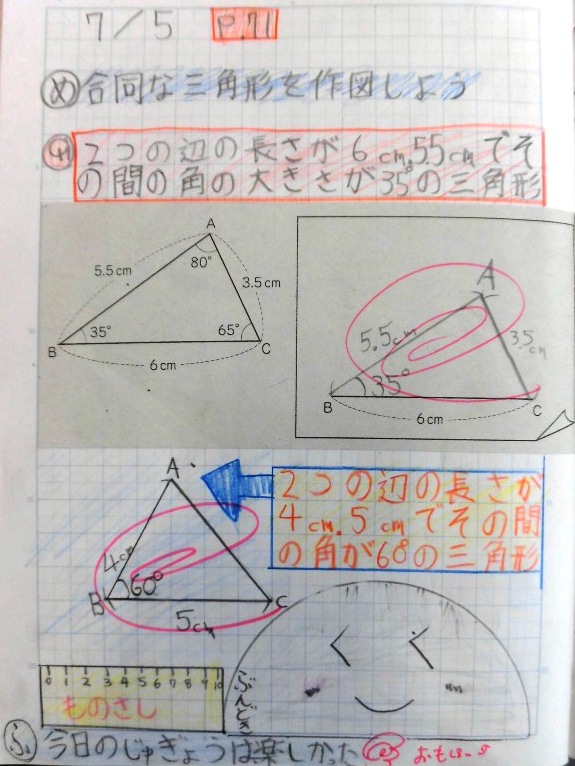 7/5 P.71
め 合同な三角形を作図しよう
2つの辺の長さが6cm.55cmでそ
の間の角の大きさが35°の三角形
A
80°
5.5cm
3.5cm
35°
65°
B
C
6cm
A
5.5cm
3.5cm
35°
B
C
6cm
A
4cm
60°
B
C
5cm
2つの辺の長さが
4cm.5cmでその間
の角が60°の三角形
0 1 2 3 4 5 6 7 8 9 10
ものさし
ぶんどき
ふ 今日のじゅぎょうは楽しかった